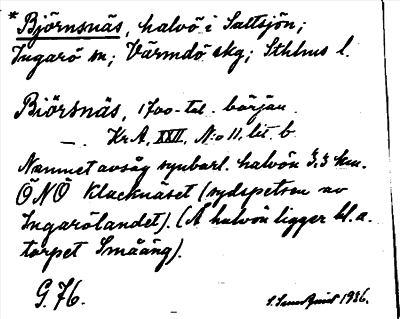 * Björnsnäs, halvö i Saltsjön;
Ingarö sn; Värmdö skg; Sthlms l.
Biörsnäs, 1700-tal. början.
—. KrA, XXII, N:o 11, lit. b.
Namnet avsåg synbarl. halvön 3,3 km.
ÖNÖ Klacknäset (sydspetsen av
Ingarölandet). (Å halvön ligger bl.a.
torpet Småäng).
G. 76.
1936.